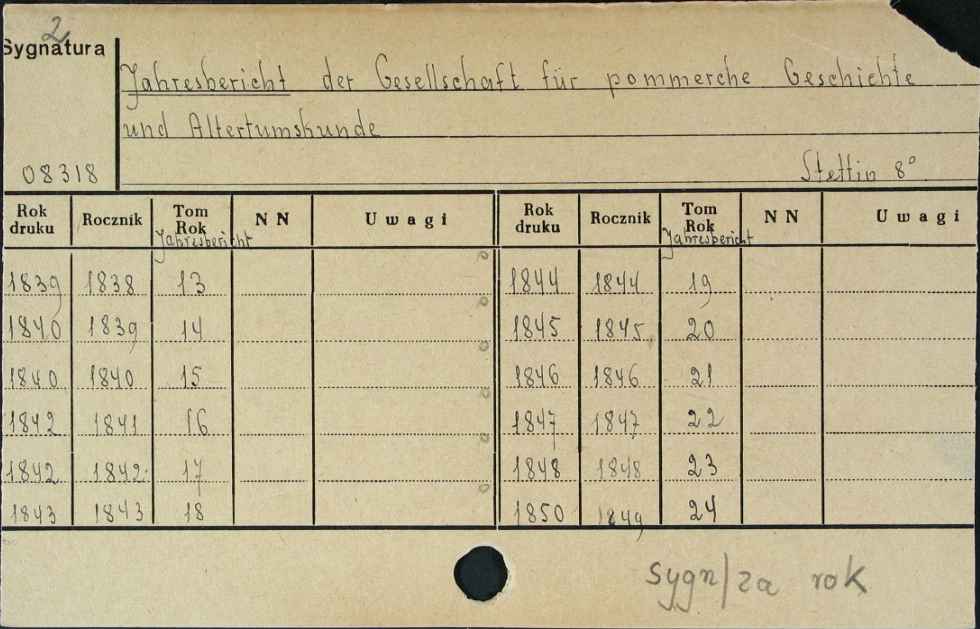 2
Sygnatura
Jahresbericht der Gesellschaft für pommerche Geschichte
und Altertumskunde
08318 Stettin 8°
Rok druku Rocznik Tom Rok Jahresbericht N N Uwagi Rok druku Rocznik Tom Rok Jahresbericht N N Uwagi
1839 1838 13 1844 1844 19
1840 1839 14 1845 1845 20
1840 1840 15 1846 1846 21
1842 1841 16 1847 1847 22
1842 1842 17 1848 1848 23
1843 1843 18 1850 1849 24
sygn/za rok